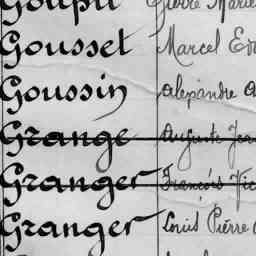 Goupil Pierre Marie
Gousset Marcel
Goussin alexandre
Grange Auguste
Granger François
Granger Louis Pierre